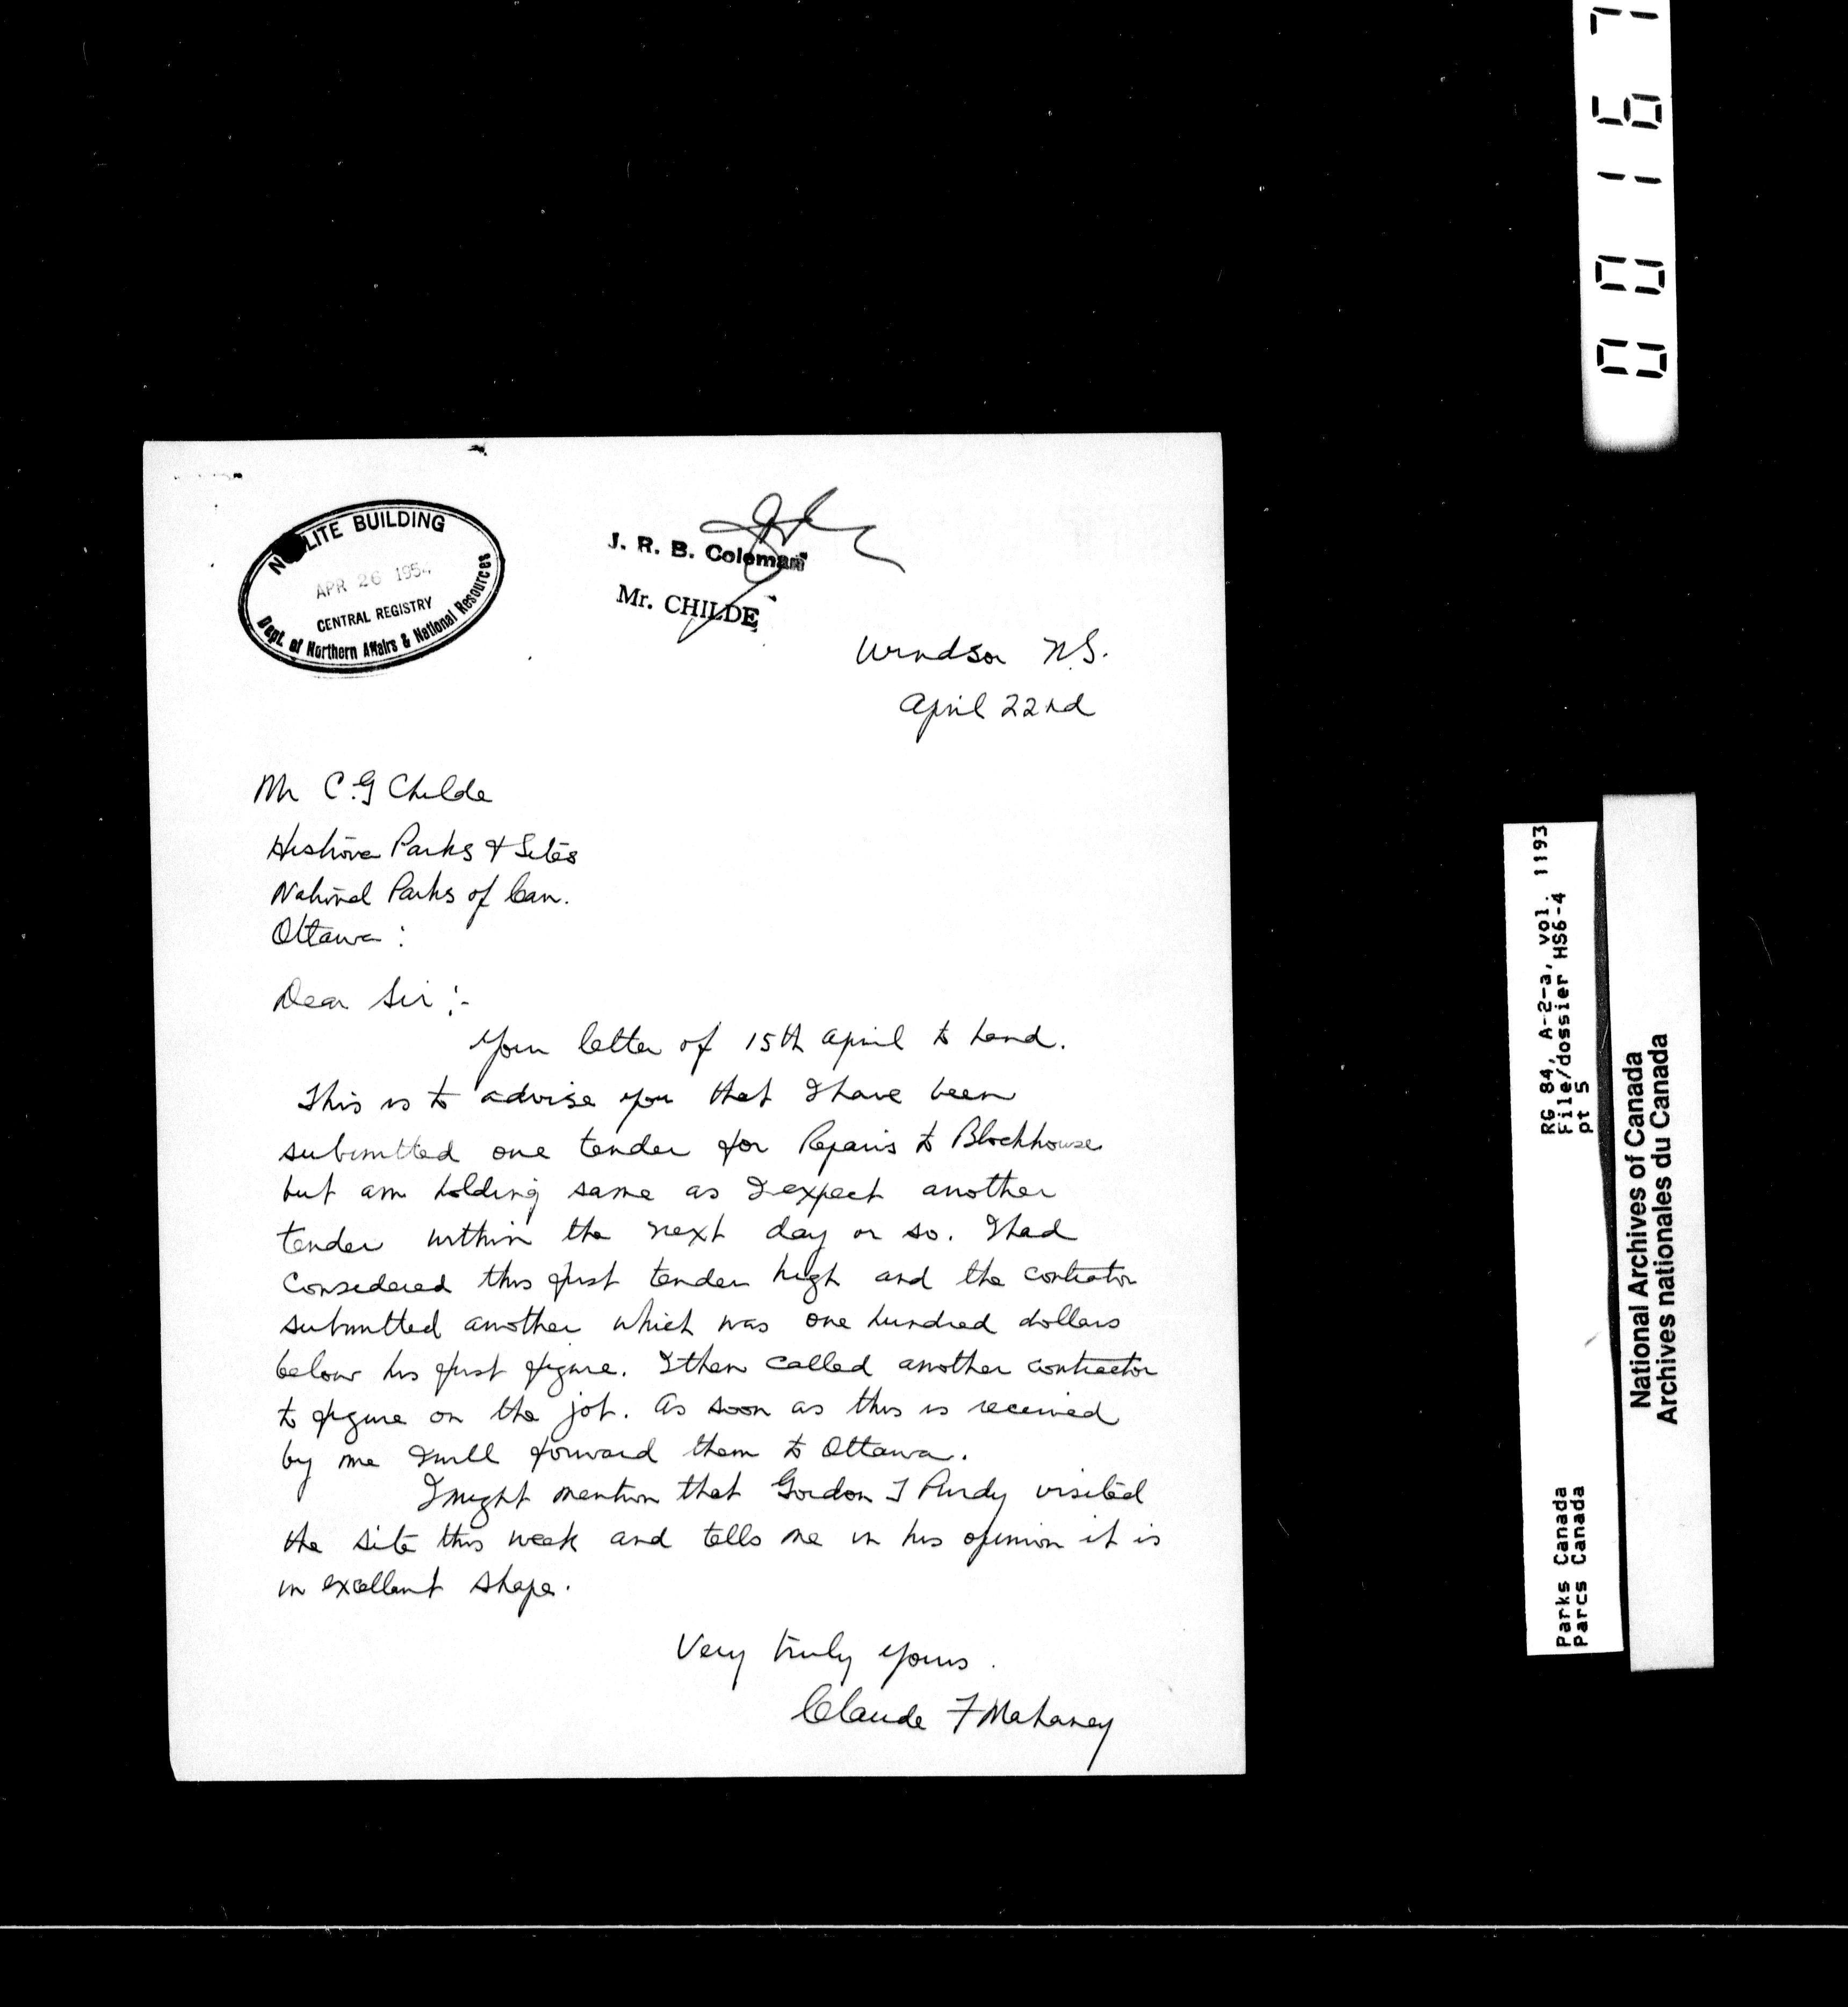 00167
NOLITE BUILDING
APR 26 1954
CENTRAL REGISTRY
Dept. of Northern Affairs & National Resources
J. R. B. Coleman
Mr. CHILDE
Windsor N.S.
April 22nd
Mr C.G Childe
Historic Parks & Sites
National Parks of Can.
Ottawa :
Dear Sir :-
Your letter of 15th April to hand.
This is to advise you that I have been
submitted one tender for Repairs to Blockhouse
but am holding same as I expect another
tender within the next day or so. I had
considered this first tender high and the contractor
submitted another which was one hundred dollars
below his first figure. I then called another contractor
to figure on the job. As soon as this is received
by me I will forward them to Ottawa.
I might mention that Gordon T Purdy visited
the site this week and tells me in his opinion it is
in excellent shape.
Very truly yours.
Claude F Mahaney
RG 84, A-2-a, vol. 1193
File/dossier HS6-4
pt 5
Parks Canada
Parcs Canada
National Archives of Canada
Archives nationales du Canada